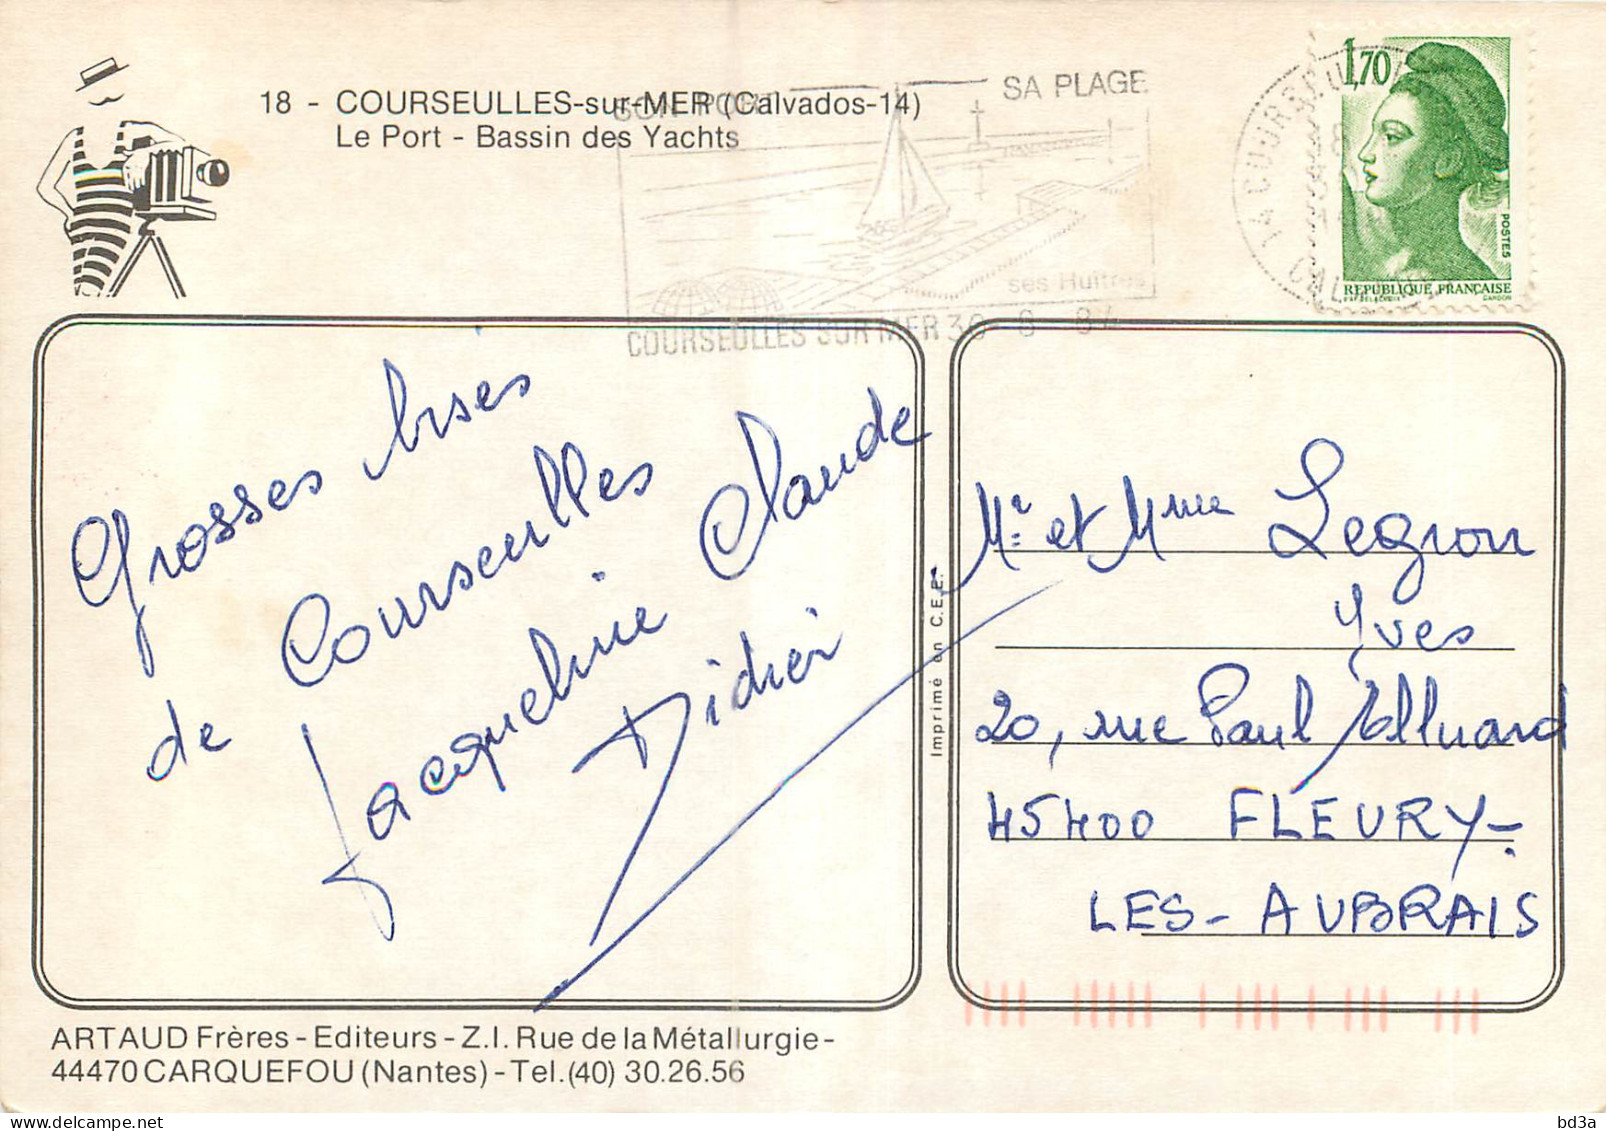 18 - COURSEULLES-sur-MER (Calvados-14)
Le Port - Bassin des Yachts
SON PORT
SA PLAGE
ses Huîtres
COURSEULLES SUR MER 30 - 8 - 84
14 COURSEUL
CAL
1,70
POSTES
REPUBLIQUE FRANÇAISE
D'AP. DELACROIX GANDON
Grosses bises
de Courseulles
Jacqueline Claude
Didier
Imprimé en C.E.E.
Mr et Mme Legron
Yves
20, rue Paul Elluard
45400 FLEURY-
LES-AUBRAIS
ARTAUD Frères - Editeurs - Z.I. Rue de la Métallurgie -
44470 CARQUEFOU (Nantes) - Tel. (40) 30.26.56
bd3a